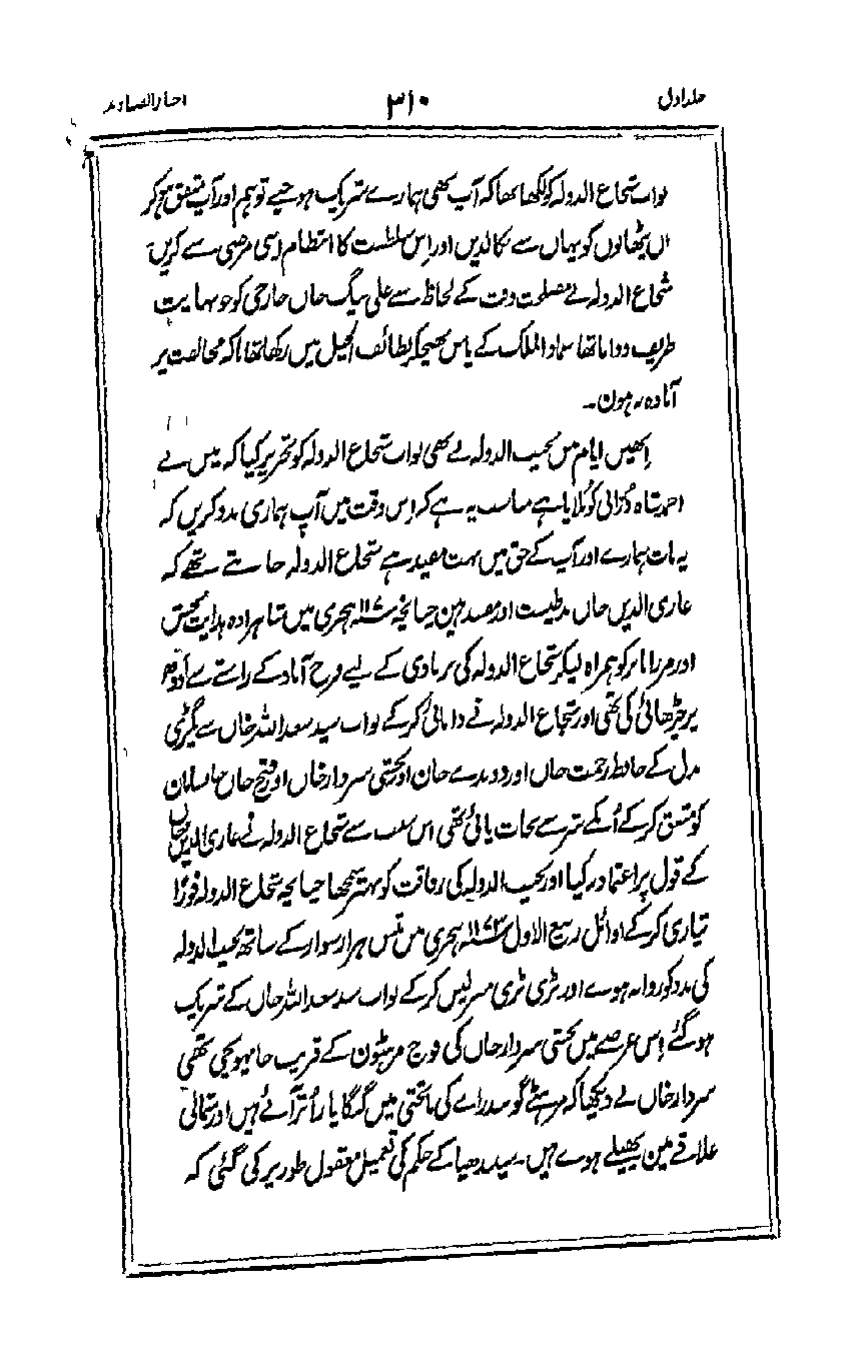 جلد اول ۳۱۰ اخبار الصنادید
نواب شجاع الدولہ کو لکھا تھا کہ آپ بھی ہمارے شریک ہو جیے تو ہم اور آپ متفق ہو کر
ان پٹھانوں کو یہاں سے نکالدیں اور اس سلطنت کا انتظام اسی مرضی سے کریں
شجاع الدولہ نے مصلحت وقت کے لحاظ سے علی بیگ خاں خارجی کو جو نہایت
ظریف و دانا تھا عماد الملک کے پاس بھیجکر لطائف الحیل میں رکھا تھا تاکہ مخالفت پر
آمادہ نہ ہون۔
انھیں ایام میں نجیب الدولہ نے بھی نواب شجاع الدولہ کو تحریر کیا کہ میں نے
احمد شاہ درانی کو بلایا ہے مناسب یہ ہے کہ اس وقت میں آپ ہماری مدد کریں کہ
یہ بات ہمارے اور آپ کے حق میں بہت مفید ہے شجاع الدولہ جانتے تھے کہ
غازی الدین خاں بدطینت اور مفسد ہین چنانچہ ۱۱۷۰ ہجری میں شاہزادہ ہدایت بخش
اور مرزا بابر کو ہمراہ لیکر شجاع الدولہ کی بربادی کے لیے فرخ آباد کے راستے سے اودھ
پر چڑھائی کی تھی اور شجاع الدولہ نے دانائی کر کے نواب سید سعد اللہ خاں سے پگڑی
بدل کے حافظ رحمت خاں اور دوندے خان اور بخشی سردار خاں اور فتح خاں خانسامان
کو متفق کر کے اُنکے شر سے نجات پائی تھی اس سبب سے شجاع الدولہ نے غازی الدین خاں
کے قول پر اعتماد نہ کیا اور نجیب الدولہ کی رفاقت کو بہتر سمجھا چنانچہ شجاع الدولہ فوراً
تیاری کر کے اوائل ربیع الاول ۱۱۷۳ ہجری میں تیس ہزار سوار کے ساتھ نجیب الدولہ
کی مدد کو روانہ ہوے اور بڑی بڑی منزلیں کر کے نواب سید سعد اللہ خاں کے شریک
ہو گئے اس عرصے میں بخشی سردار خاں کی فوج مرہٹون کے قریب جا پہونچی تھی
سردار خاں نے دیکھا کہ مرہٹے گوبند راے کی ماتحتی میں گنگا پار اُتر آئے ہیں اور شمالی
علاقے مین پھیلے ہوے ہیں۔ سیندھیا کے حکم کی تعمیل معقول طور پر کی گئی کہ